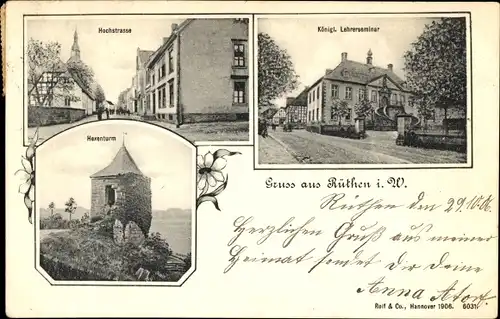 Hochstrasse
Königl. Lehrerseminar
Hexenturm
Gruss aus Rüthen i. W.
Rüthen den 29.10.06.
Herzlichen Gruß aus meiner
Heimat sendet Dir Deine
Anna
Ruit & Co., Hannover 1906. 6031.